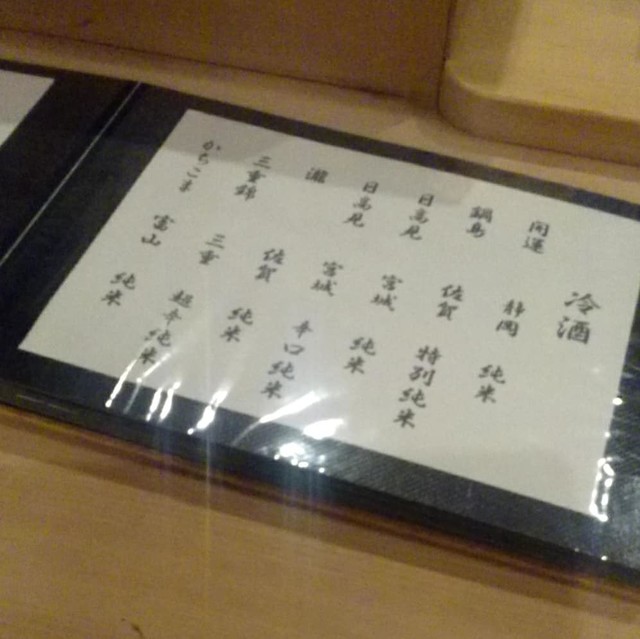 冷酒
開運 静岡 純米
鍋島 佐賀 特別純米
日高見 宮城 純米
日高見 宮城 辛口純米
瀧 佐賀 純米
三重錦 三重 超辛純米
かちこま 富山 純米